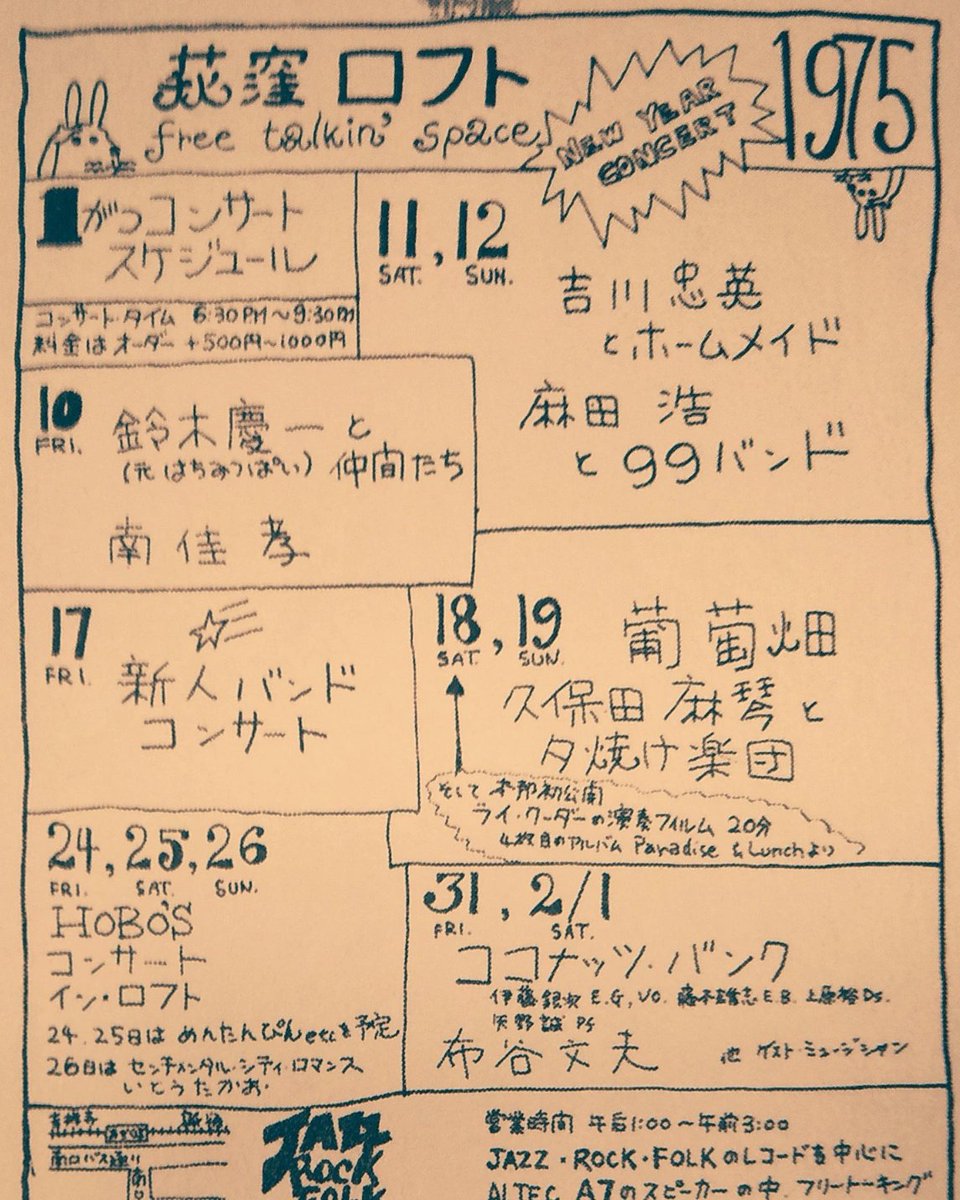 荻窪 ロフト
free talkin' space
NEW YEAR
CONCERT
1975
1がつコンサート
スケジュール
コンサート・タイム 6:30PM〜9:30PM
料金はオーダー +500円〜1000円
11, 12
SAT. SUN.
吉川忠英
とホームメイド
麻田 浩
と99バンド
10
FRI.
鈴木慶一と
(元はちみつぱい) 仲間たち
南佳孝
17
FRI.
新人バンド
コンサート
18, 19
SAT. SUN.
葡萄畑
久保田麻琴と
夕焼け楽団
そして 本邦初公開
ライ・クーダーの演奏フィルム 20分
4枚目のアルバム Paradise & Lunchより
24, 25, 26
FRI. SAT. SUN.
HOBO'S
コンサート
イン・ロフト
24.25日は めんたんぴんetcを予定
26日は センチメンタル・シティ・ロマンス
いとうたかお.
31, 2/1
FRI. SAT.
ココナッツ・バンク
伊藤銀次 E.G, VO. 藤本雄志 E.B. 上原裕 Ds.
矢野誠 Pf
布谷文夫 他 ゲスト・ミュージシャン
吉祥寺
南口バス通り
JAZZ
ROCK
FOLK
営業時間 午后1:00〜午前3:00
JAZZ・ROCK・FOLKのレコードを中心に
ALTEC A7のスピーカーの中 フリートーキング